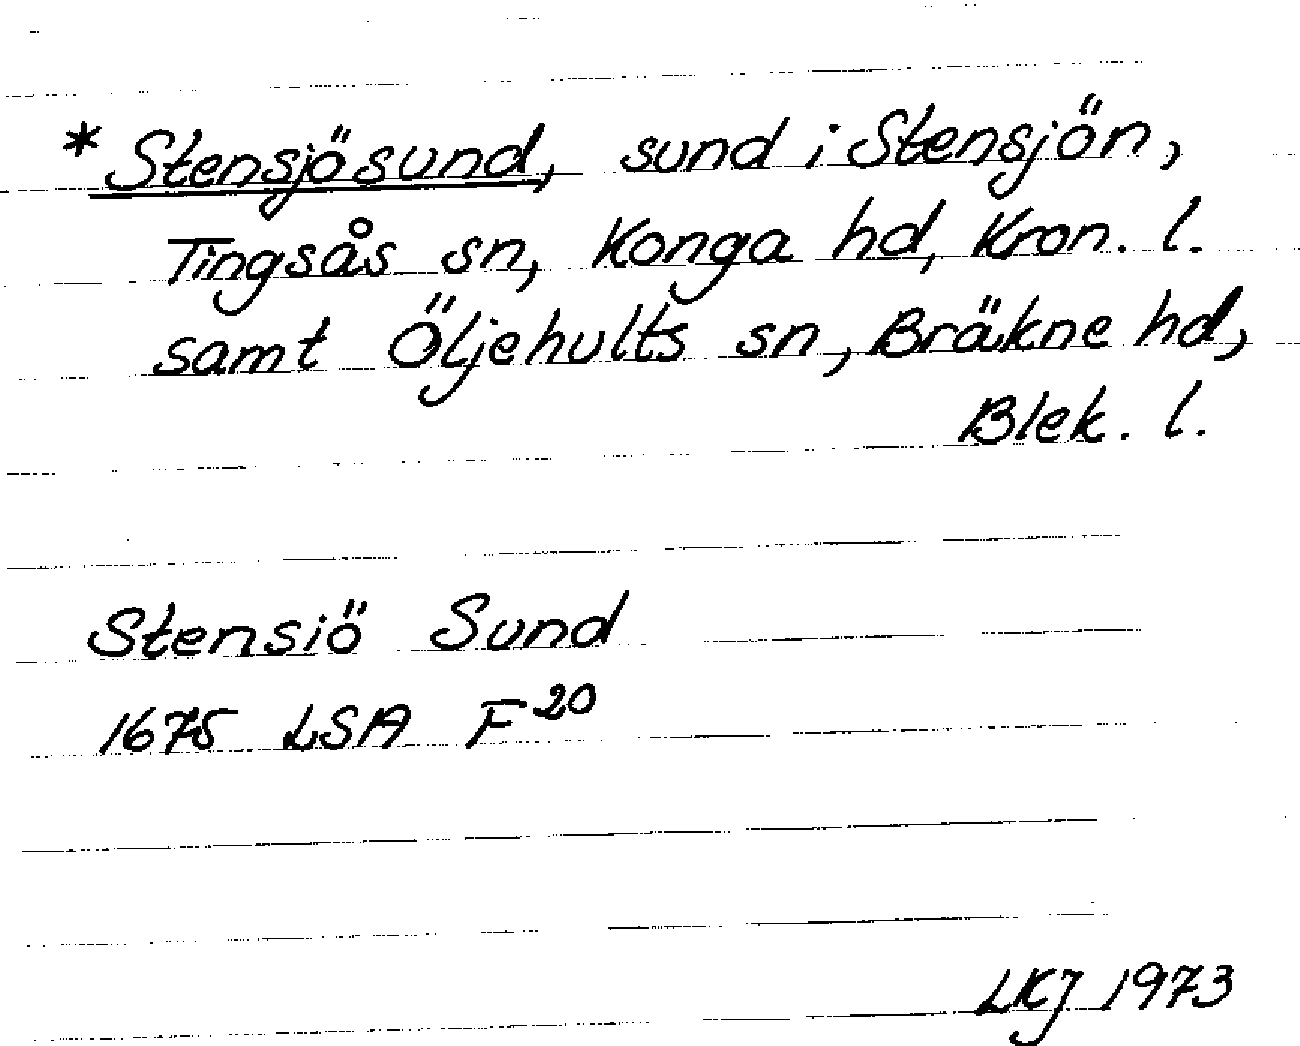 * Stensjösund, sund i Stensjön,
Tingsås sn, Konga hd, Kron. l.
samt Öljehults sn, Bräkne hd,
Blek. l.
Stensiö Sund
1675 LSA F 20
LKJ 1973